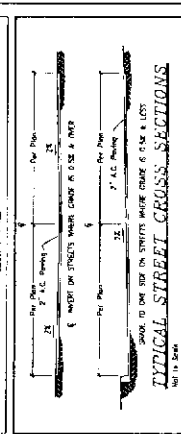 Per Plan
Per Plan
2%
2%
2" A.C. Paving
℄ INVERT ON STREETS WHERE GRADE IS 0.5% & OVER
Per Plan
Per Plan
2%
2" A.C. Paving
GRADE TO ONE SIDE ON STREETS WHERE GRADE IS 0.5% & LESS
TYPICAL STREET CROSS SECTIONS
Not to Scale